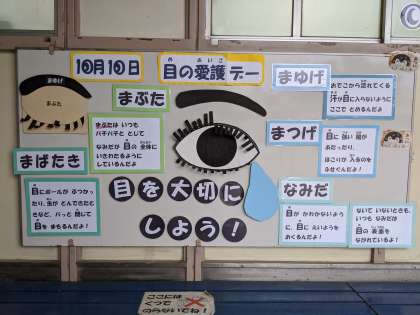 10月10日
目の愛護デー
め
あいご
まゆげ
まぶた
まゆげ
おでこから流れてくる
汗が目に入らないように
ここで とめるんだよ!
まぶた
まぶたは いつも
パチパチと して
なみだが 目の 全体に
いきわたるように
しているんだよ
まつげ
目に 強い 風が
あたったり、
ほこりが 入るのを
ふせぐんだよ!
まばたき
目にボールが ぶつかっ
たり、虫が とんできたと
きなど、パッと 閉じて
目を まもるんだよ!
目を大切に
しよう!
なみだ
目が かわかないよう
に、目に えいようを
おくるんだよ!
ないて いないときも、
いつも なみだは
目の 表面を
ながれているよ!
ここには
くつで
のらないでね!